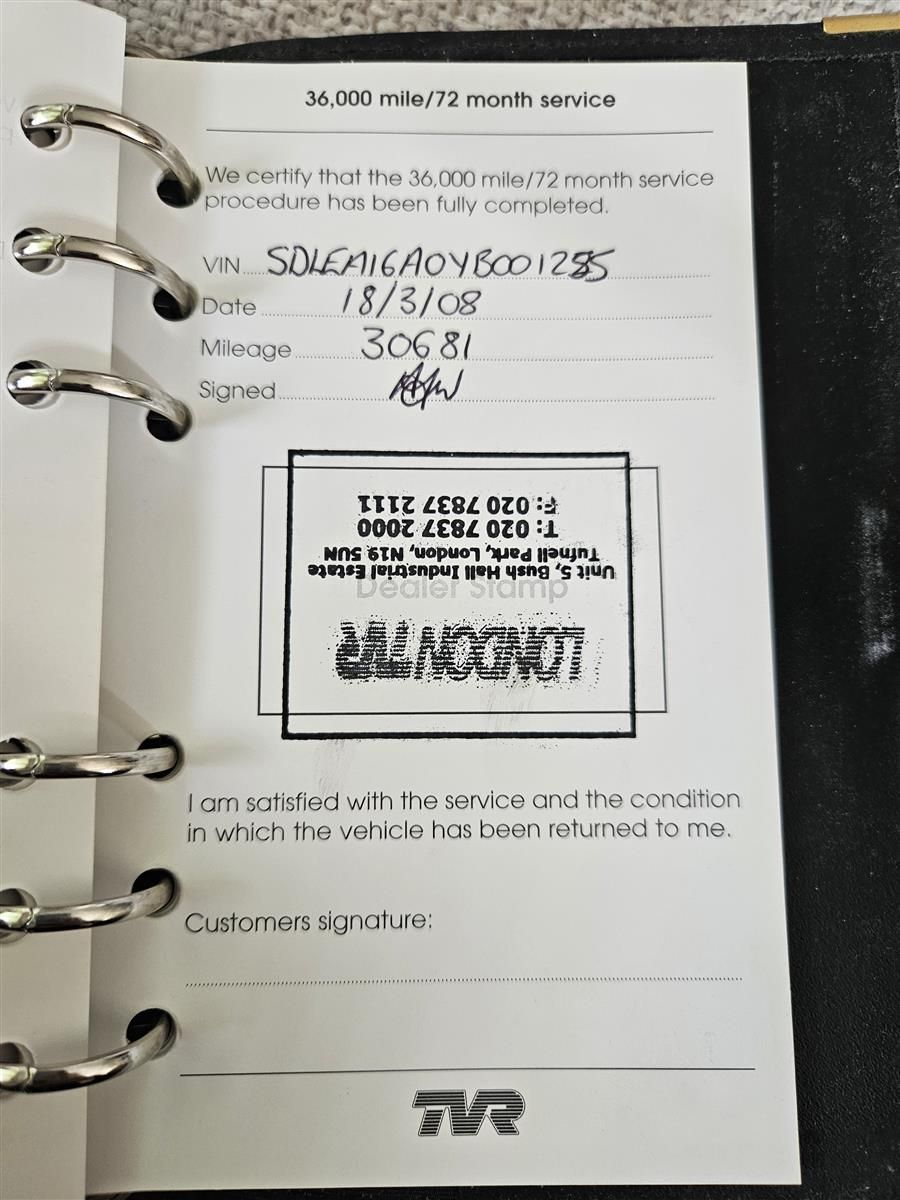 36,000 mile/72 month service
We certify that the 36,000 mile/72 month service
procedure has been fully completed.
VIN SDLEA16A0YB001285
Date 18/3/08
Mileage 30681
Signed
Dealer Stamp
LONDON TVR
Unit 5, Bush Hall Industrial Estate
Tufnell Park, London, N19 5UN
T: 020 7837 2000
F: 020 7837 2111
I am satisfied with the service and the condition
in which the vehicle has been returned to me.
Customers signature:
TVR